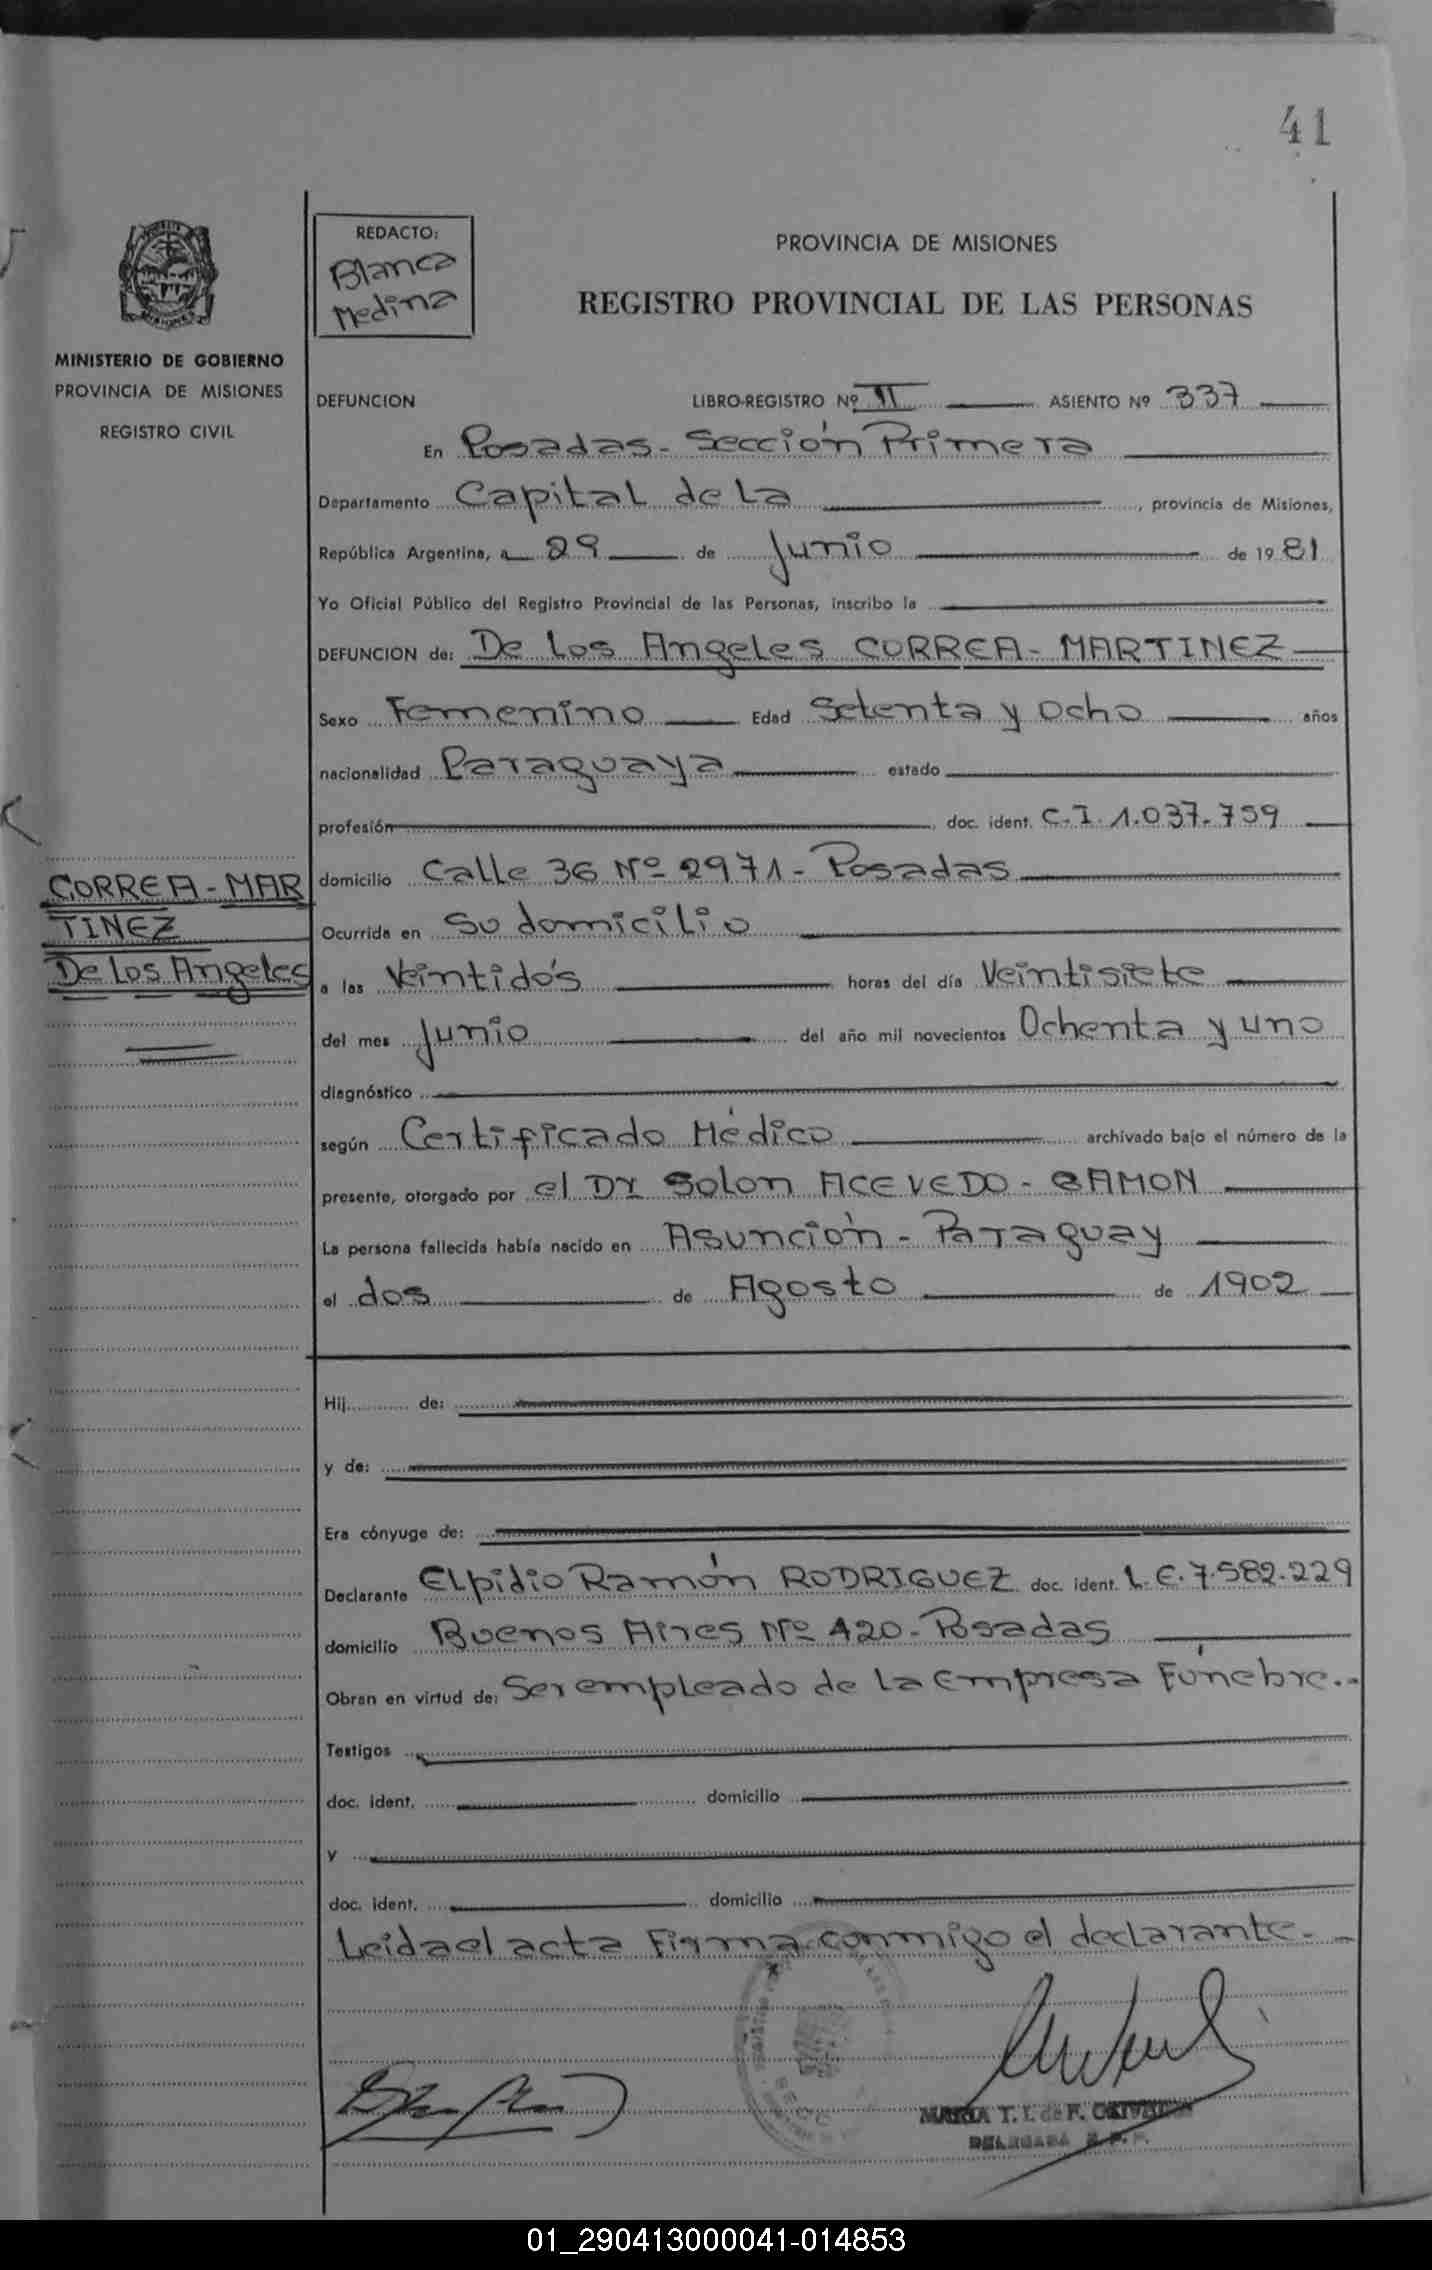 41
REDACTO:
Blanca
Medina
PROVINCIA DE MISIONES
REGISTRO PROVINCIAL DE LAS PERSONAS
MINISTERIO DE GOBIERNO
PROVINCIA DE MISIONES
REGISTRO CIVIL
DEFUNCION LIBRO-REGISTRO Nº II ASIENTO Nº 337
En Posadas- Sección Primera
Departamento Capital de La, provincia de Misiones,
República Argentina, a 29 de Junio de 1981
Yo Oficial Público del Registro Provincial de las Personas, inscribo la
DEFUNCION de: De Los Angeles CORREA- MARTINEZ
Sexo Femenino Edad Setenta y Ocho años
nacionalidad Paraguaya estado
profesión doc. ident. C.I. 1.037.759
domicilio Calle 36 Nº 2971- Posadas
CORREA-MAR
TINEZ
De Los Angeles
Ocurrida en su domicilio
a las Veintidós horas del día Veintisiete
del mes Junio del año mil novecientos Ochenta y uno
diagnóstico
según Certificado Médico archivado bajo el número de la
presente, otorgado por el Dr Solon ACEVEDO-
La persona fallecida había nacido en Asunción- Paraguay
el dos de Agosto de 1902
Hij de:
y de:
Era cónyuge de:
Declarante Elpidio Ramón RODRIGUEZ doc. ident. L.E.7.582.229
domicilio Buenos Aires Nº 420- Posadas
Obran en virtud de: Ser empleado de la Empresa Fúnebre.-
Testigos
doc. ident. domicilio
y
doc. ident. domicilio
Leida el acta Firma conmigo el declarante.-
MARIA T. I. de F.
DELEGADA
01_290413000041-014853